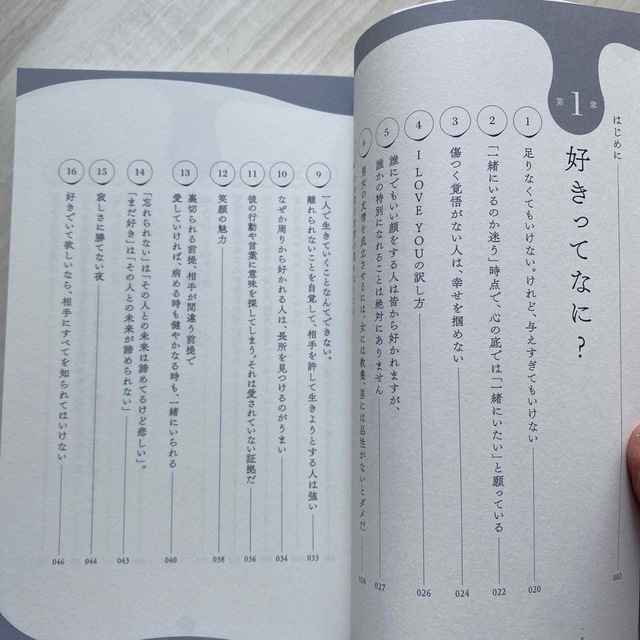 はじめに 002
第1章
好きってなに？
1 足りなくてもいけない。けれど、与えすぎてもいけない 020
2 「一緒にいるのか迷う」時点で、心の底では「一緒にいたい」と願っている 022
3 傷つく覚悟がない人は、幸せを掴めない 024
4 I LOVE YOUの訳し方 026
5 誰にでもいい顔をする人は皆から好かれますが、
誰かの特別になれることは絶対にありません 027
6 男女の友情を成立させるには、女には教養、男には品性がないとダメだ 028
9 一人で生きていくことなんてできない。
離れられないことを自覚して、相手を許して生きようとする人は強い 033
10 なぜか周りから好かれる人は、長所を見つけるのがうまい 034
11 彼の行動や言葉に意味を探してしまう。それは愛されていない証拠だ 036
12 笑顔の魅力 038
13 裏切られる前提、相手が間違う前提で
愛していければ、病める時も健やかなる時も、一緒にいられる 040
14 「忘れられない」は「その人との未来は諦めてるけど悲しい」。
「まだ好き」は「その人との未来が諦められない」 043
15 寂しさに勝てない夜 044
16 好きでいて欲しいなら、相手にすべてを知られてはいけない 046